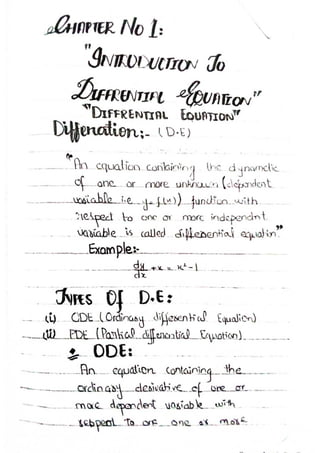 CHAPTER NO 1:
"INTRODUCTION TO
DIFFRENTIAL EQUATION"
"DIFFRENTIAL EQUATION"
Diffenation:- (D.E)
"An equation containing the dynametic
of one or more unknown (dependent
variable i.e y=f(x)) function with
respect to one or more independnt
variable is called differential equatin"
Example:-
dy/dx + x = x² - 1
TYPES OF D.E:
(i) ODE (Ordinary differential Equation)
(ii) PDE (Partial differential Equation).
ODE:
An equation containing the
ordinary derivative of one or
more dependent variable with
respent to one one or more